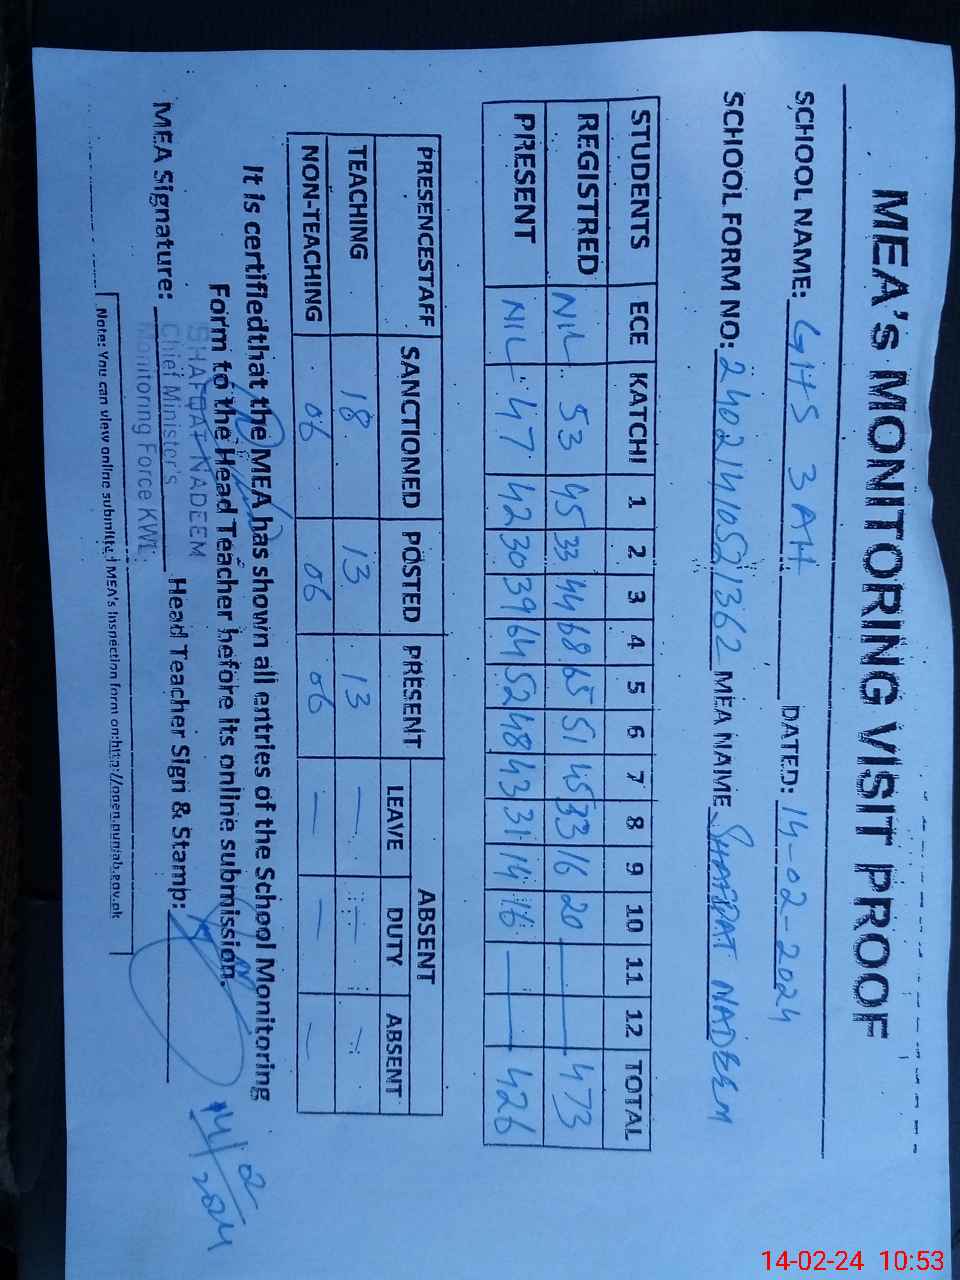 MEA's MONITORING VISIT PROOF
SCHOOL NAME: GHS 3 AH DATED: 14-02-2024
SCHOOL FORM NO: 2402141052 1362 MEA NAME SHAFQAT NADEEM
STUDENTS ECE KATCHI 1 2 3 4 5 6 7 8 9 10 11 12 TOTAL
REGISTRED NIL 53 45 33 44 68 65 51 45 33 16 20 — 473
PRESENT NIL 47 42 30 39 64 52 48 43 31 14 16 — 426
PRESENCESTAFF SANCTIONED POSTED PRESENT ABSENT
LEAVE DUTY ABSENT
TEACHING 18 13 13 — — —
NON-TEACHING 06 06 06 — — —
It is certifiedthat the MEA has shown all entries of the School Monitoring
Form to the Head Teacher before its online submission.
MEA Signature: Head Teacher Sign & Stamp:
SHAFQAT NADEEM
Chief Minister's
Monitoring Force KWL
14/2/2024
Note: You can view online submitted MEA's Inspection form on:http://open.punjab.gov.pk
14-02-24 10:53